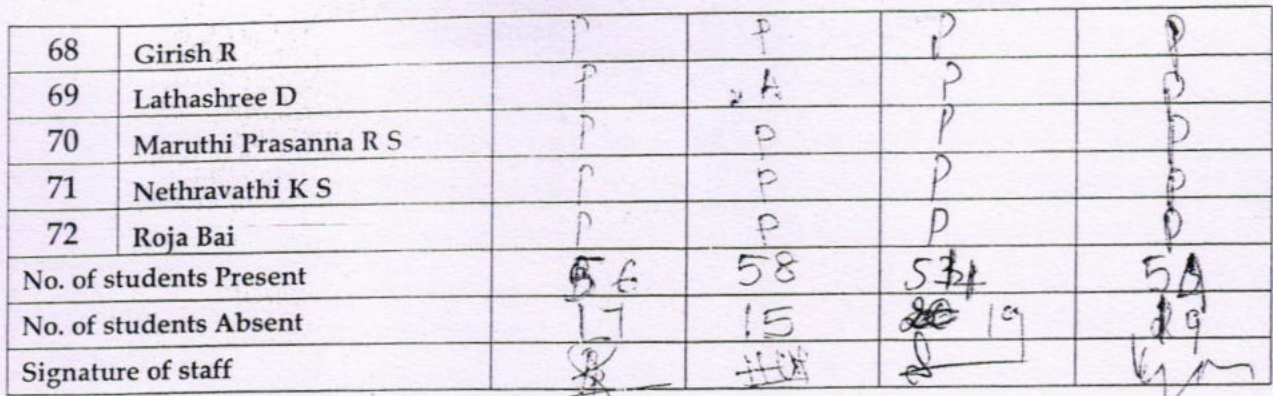 68 Girish R P P P P
69 Lathashree D P A P P
70 Maruthi Prasanna R S P P P P
71 Nethravathi K S P P P P
72 Roja Bai P P P P
No. of students Present 56 58 54
No. of students Absent 17 15 19 19
Signature of staff